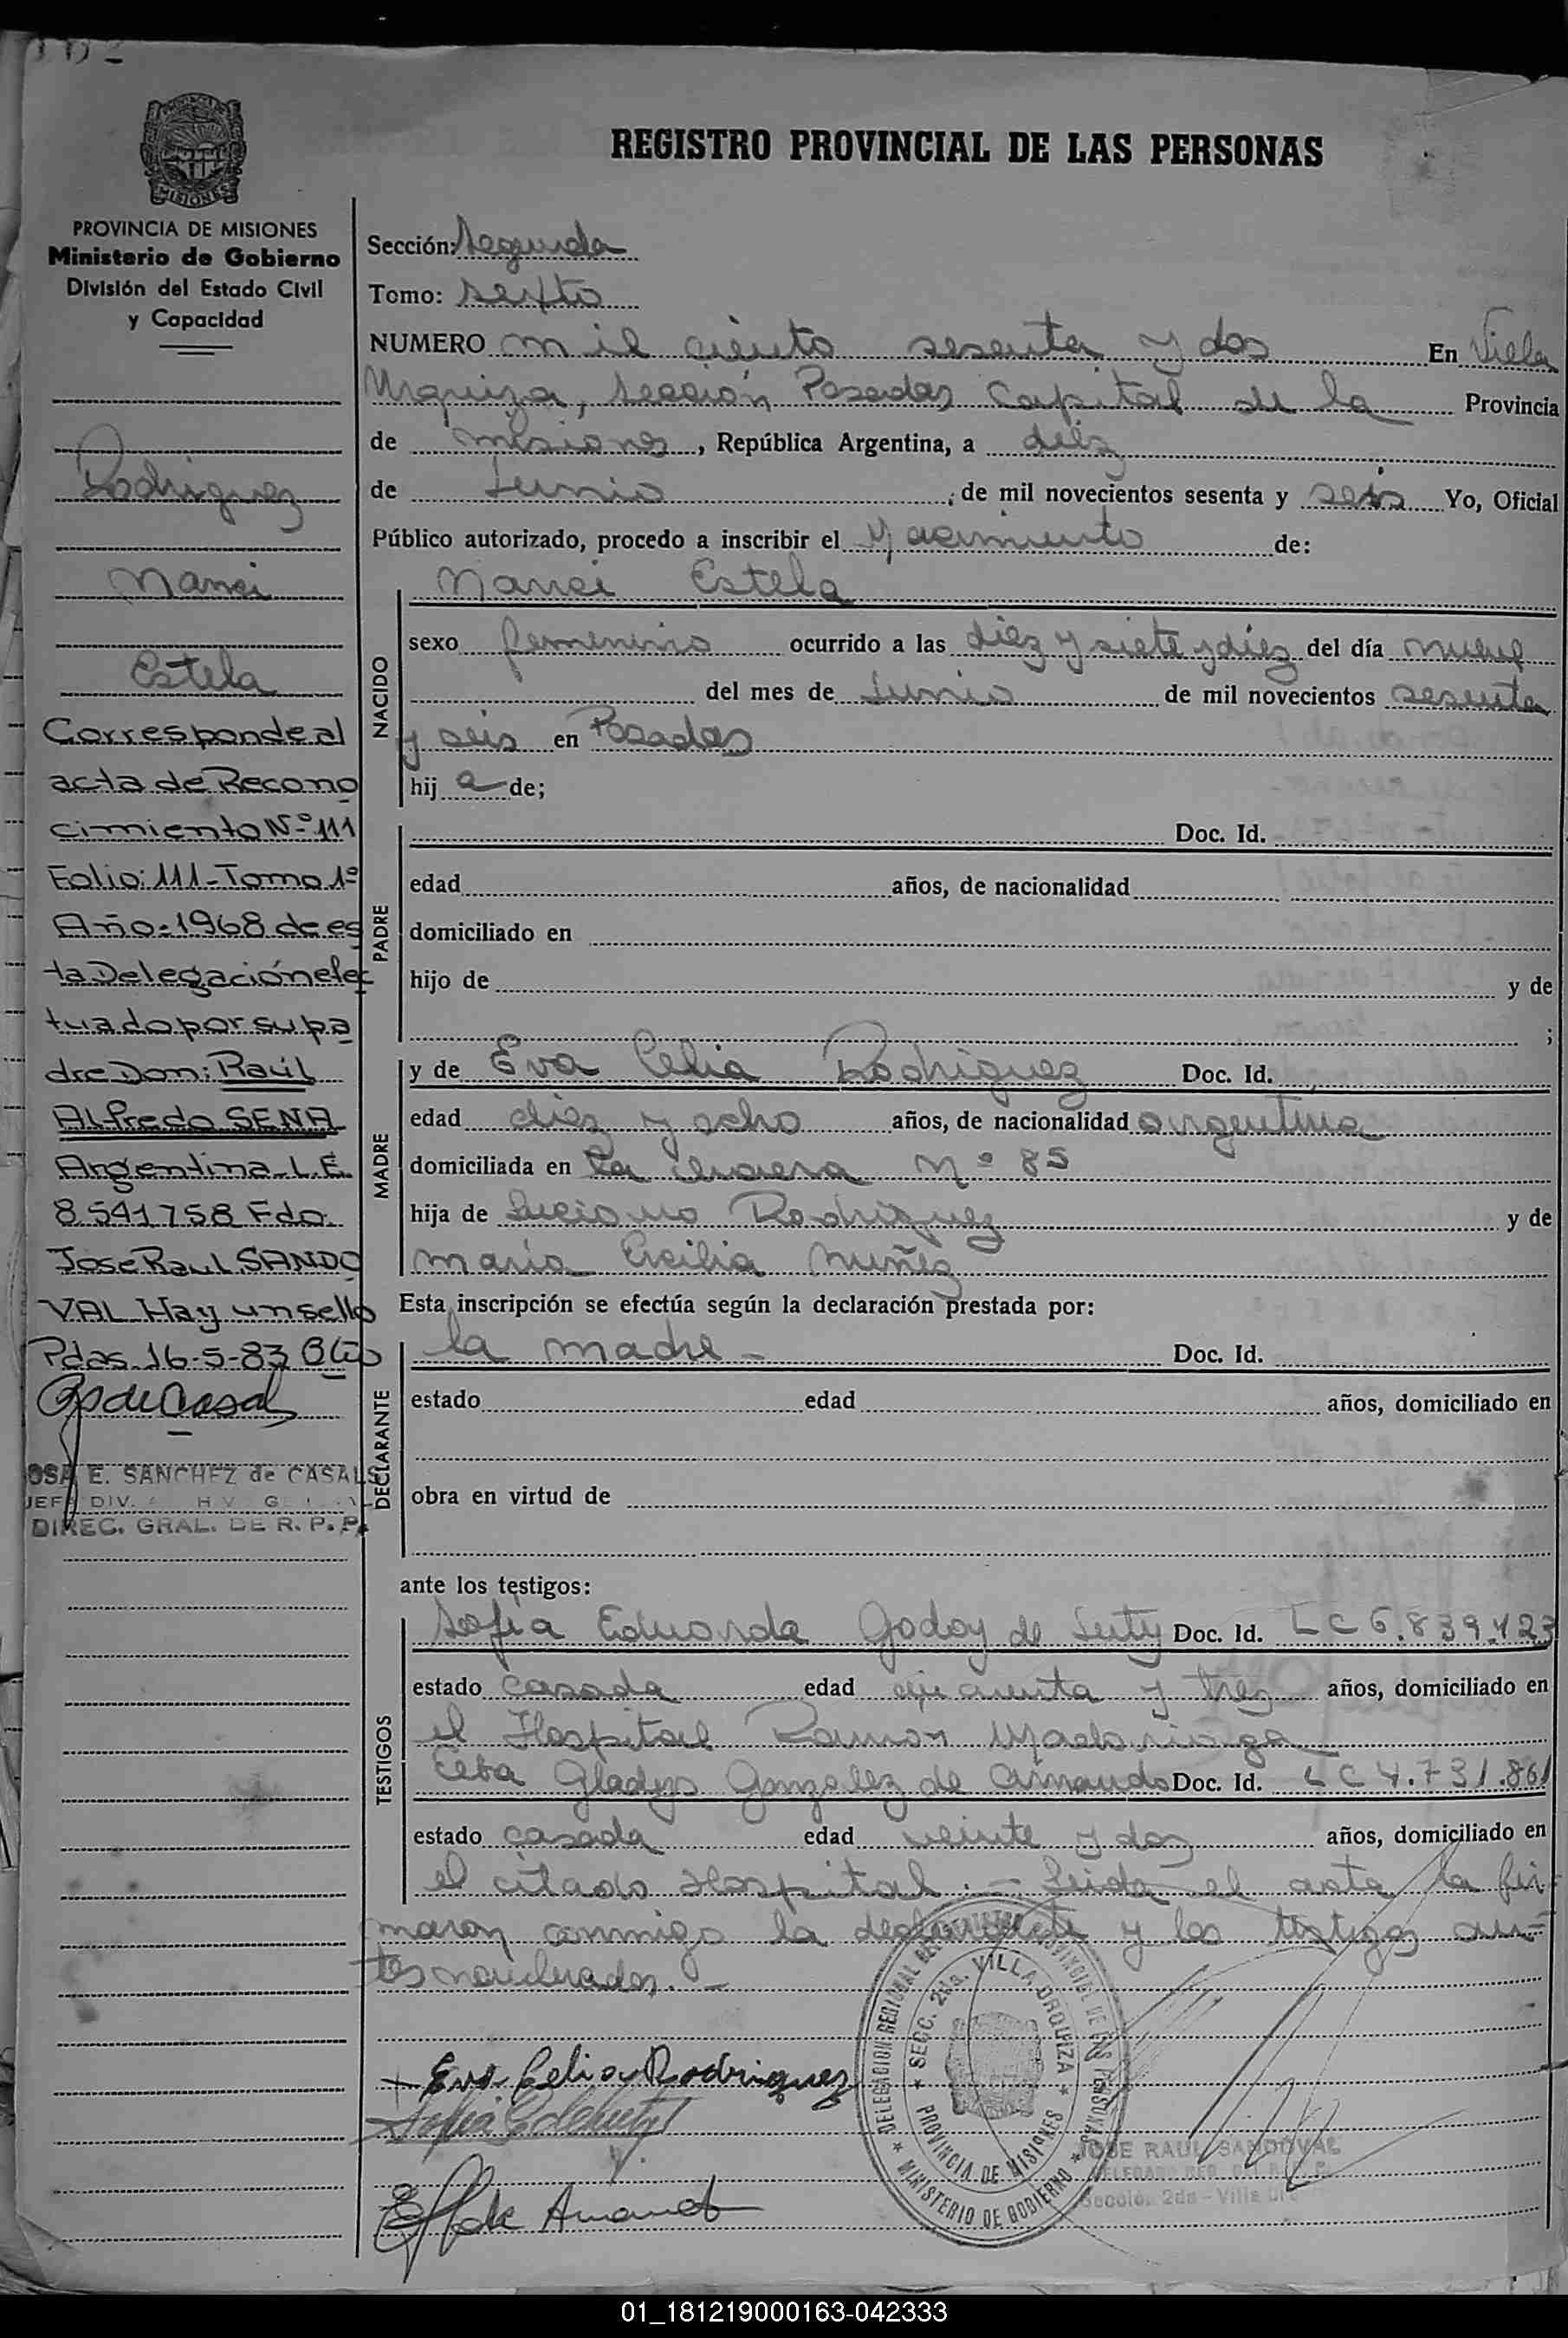 MISIONES
PROVINCIA DE MISIONES
Ministerio de Gobierno
División del Estado Civil
y Capacidad
Rodriguez
Nanci
Estela
Corresponde al
acta de Recono
cimiento Nº 111
Folio: 111-Tomo 1º
Año: 1968 de es
ta Delegación efec
tuado por su pa
dre Don: Raúl
Alfredo SENA
Argentina-L.E.
8.541.758 Fdo.
Jose Raul SANDO
VAL Hay un sello
Pdas. 16-5-83
OSA E. SANCHEZ de CASALS
JEFE DIV.
DIREC. GRAL. DE R. P. P.
REGISTRO PROVINCIAL DE LAS PERSONAS
Sección: Segunda
Tomo: sexto
NUMERO mil ciento sesenta y dos En Villa
Urquiza, Sección Posadas Capital de la Provincia
de Misiones, República Argentina, a diez
de Junio de mil novecientos sesenta y seis Yo, Oficial
Público autorizado, procedo a inscribir el Nacimiento de:
NACIDO
Nanci Estela
sexo femenino ocurrido a las diez y siete y diez del día nueve
del mes de Junio de mil novecientos sesenta
y seis en Posadas
hij a de;
PADRE
Doc. Id.
edad años, de nacionalidad
domiciliado en
hijo de y de
;
MADRE
y de Eva Celia Rodriguez Doc. Id.
edad diez y ocho años, de nacionalidad argentina
domiciliada en La Nº 85
hija de Luciano Rodriguez y de
María Ercilia Nuñez
Esta inscripción se efectúa según la declaración prestada por:
DECLARANTE
la madre - Doc. Id.
estado edad años, domiciliado en
obra en virtud de
ante los testigos:
TESTIGOS
Sofia Eduarda Godoy de Doc. Id. LC 6.839.423
estado casada edad cincuenta y tres años, domiciliado en
el Hospital Ramon Madariaga
Elba Gladys Gonzalez de Amando Doc. Id. LC 4.731.861
estado casada edad veinte y dos años, domiciliado en
el citado Hospital. - Leida el acta la fir
maron conmigo la declarante y los testigos an=
tes nombrados. -
Eva Celia Rodriguez
DELEGACION REGIONAL DEL REGISTRO PROVINCIAL DE LAS PERSONAS
* SECC. 2da. VILLA URQUIZA *
PROVINCIA DE MISIONES
* MINISTERIO DE GOBIERNO *
JOSE RAUL SANDOVAL
Sección 2da - Villa
01_181219000163-042333